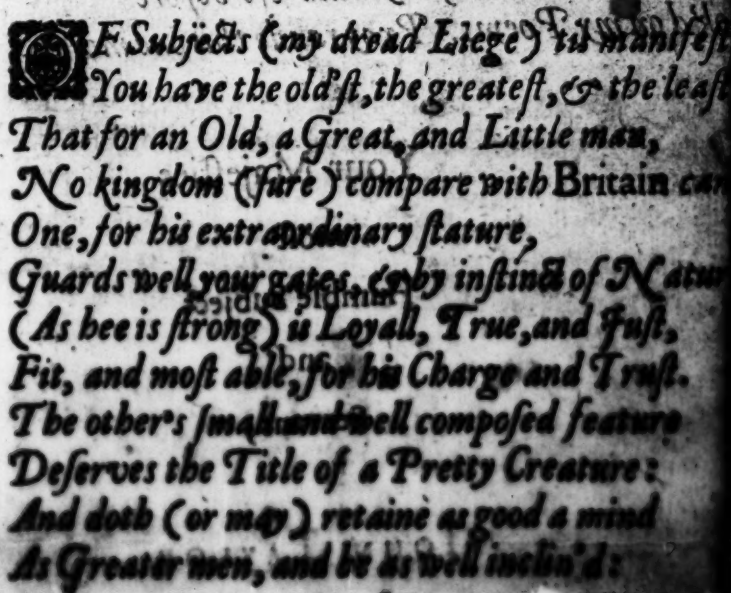 OF Subjects (my dread Liege) 'tis manifest
You have the old'st, the greatest, & the least
That for an Old, a Great, and Little man,
No kingdom (sure) compare with Britain can
One, for his extraordinary stature,
Guards well your gates, & by instinct of Natur
(As hee is strong) is Loyall, True, and Just,
Fit, and most able, for his Charge and Trust.
The other's small and well composed feature
Deserves the Title of a Pretty Creature:
And doth (or may) retaine as good a mind
As Greater men, and be as well inclin'd: